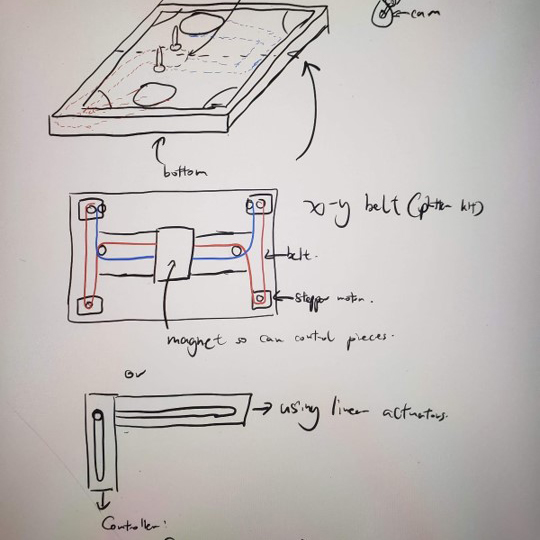 cam
bottom
x-y belt (plotter kit)
belt.
stepper motor.
magnet so can control pieces.
or
using linear actuators.
Controller.